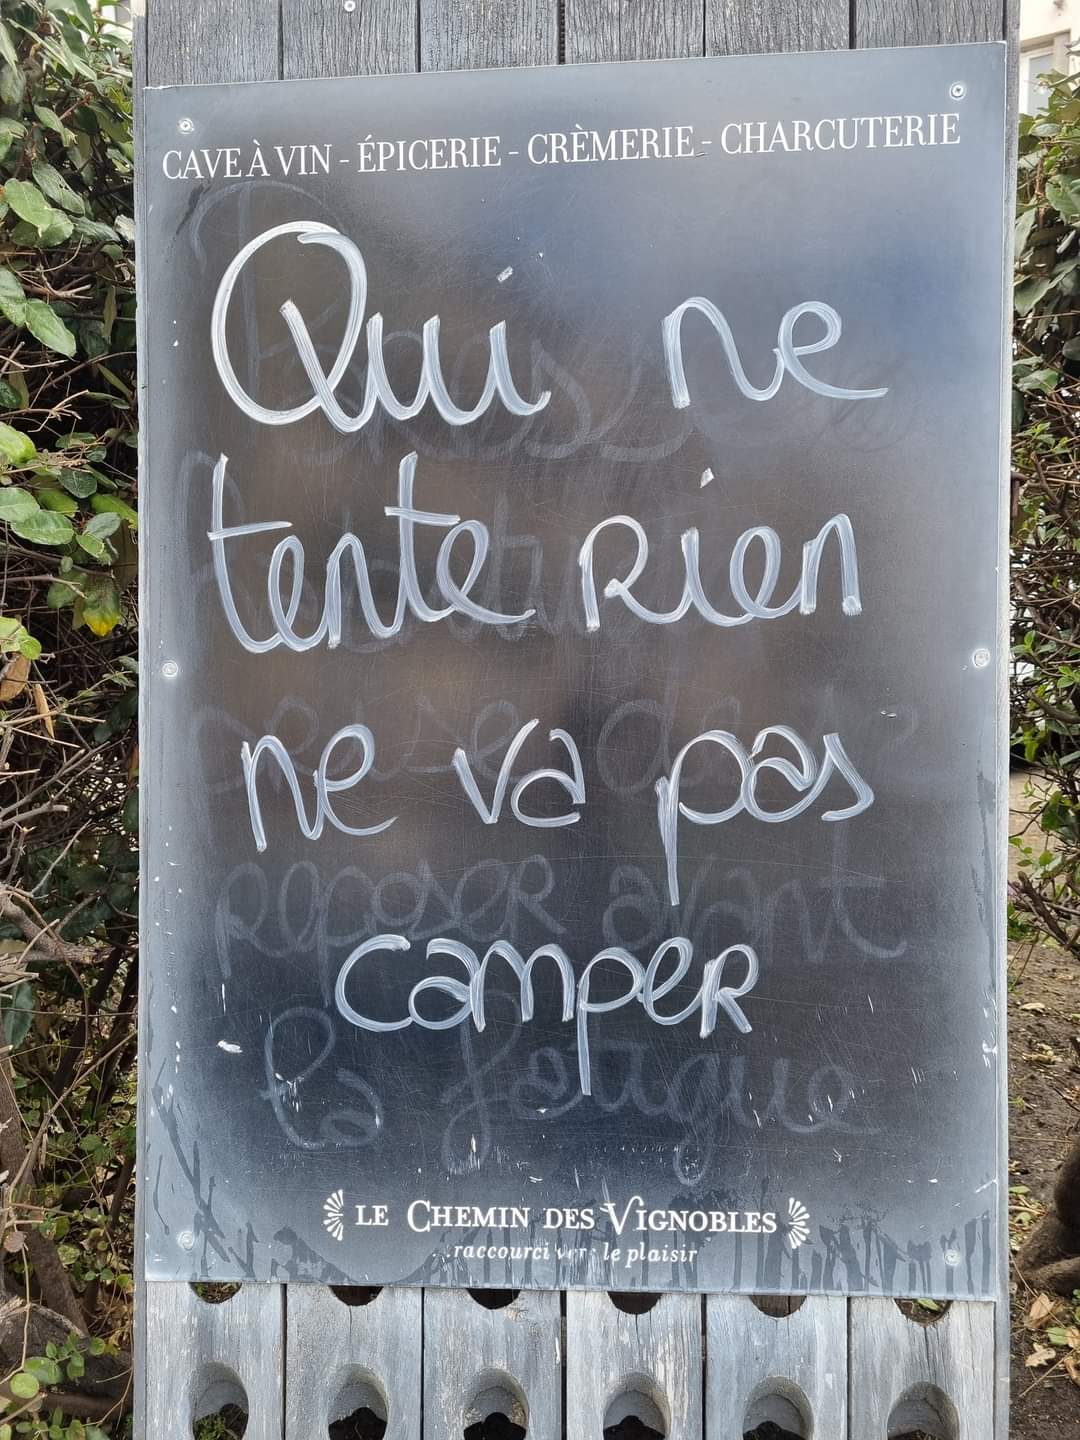 CAVE À VIN - ÉPICERIE - CRÈMERIE - CHARCUTERIE
Qui ne
tente rien
ne va pas
reposer avant
camper
la fatigue
LE CHEMIN DES VIGNOBLES
raccourci vers le plaisir